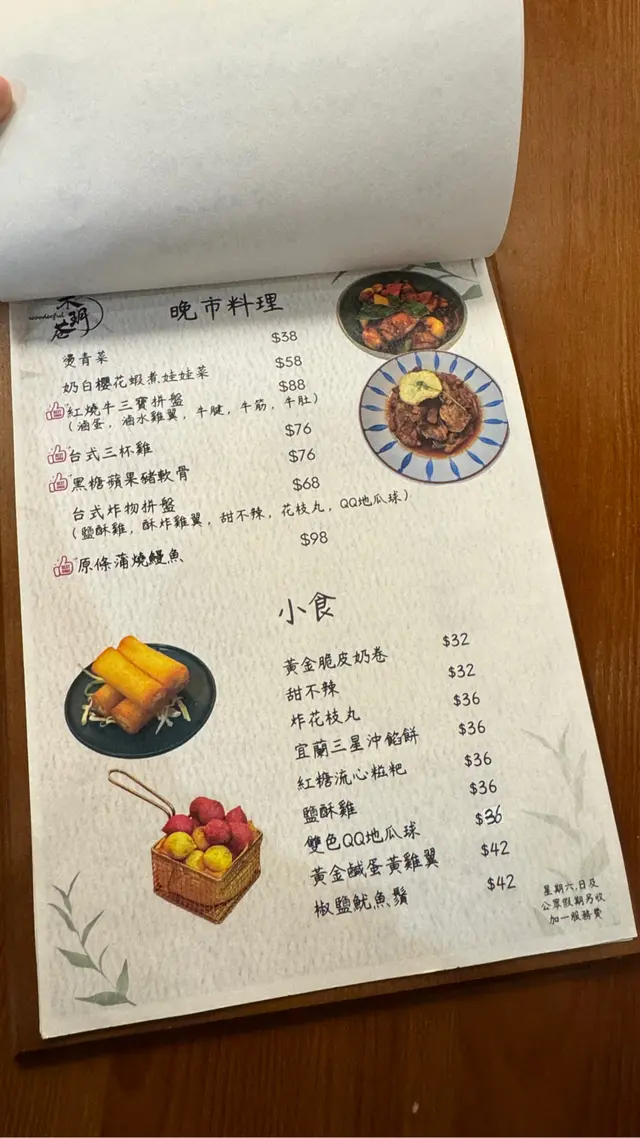 wonderful
晚市料理
燙青菜 $38
奶白櫻花蝦煮娃娃菜 $58
紅燒牛三寶拼盤 $88
(滷蛋, 滷水雞翼, 牛腱, 牛筋, 牛肚)
台式三杯雞 $76
黑糖蘋果豬軟骨 $76
台式炸物拼盤 $68
(鹽酥雞, 酥炸雞翼, 甜不辣, 花枝丸, QQ地瓜球)
原條蒲燒鰻魚 $98
小食
黃金脆皮奶卷 $32
甜不辣 $32
炸花枝丸 $36
宜蘭三星沖餡餅 $36
紅糖流心糍粑 $36
鹽酥雞 $36
雙色QQ地瓜球 $36
黃金鹹蛋黃雞翼 $42
椒鹽魷魚鬚 $42
星期六,日及
公眾假期另收
加一服務費